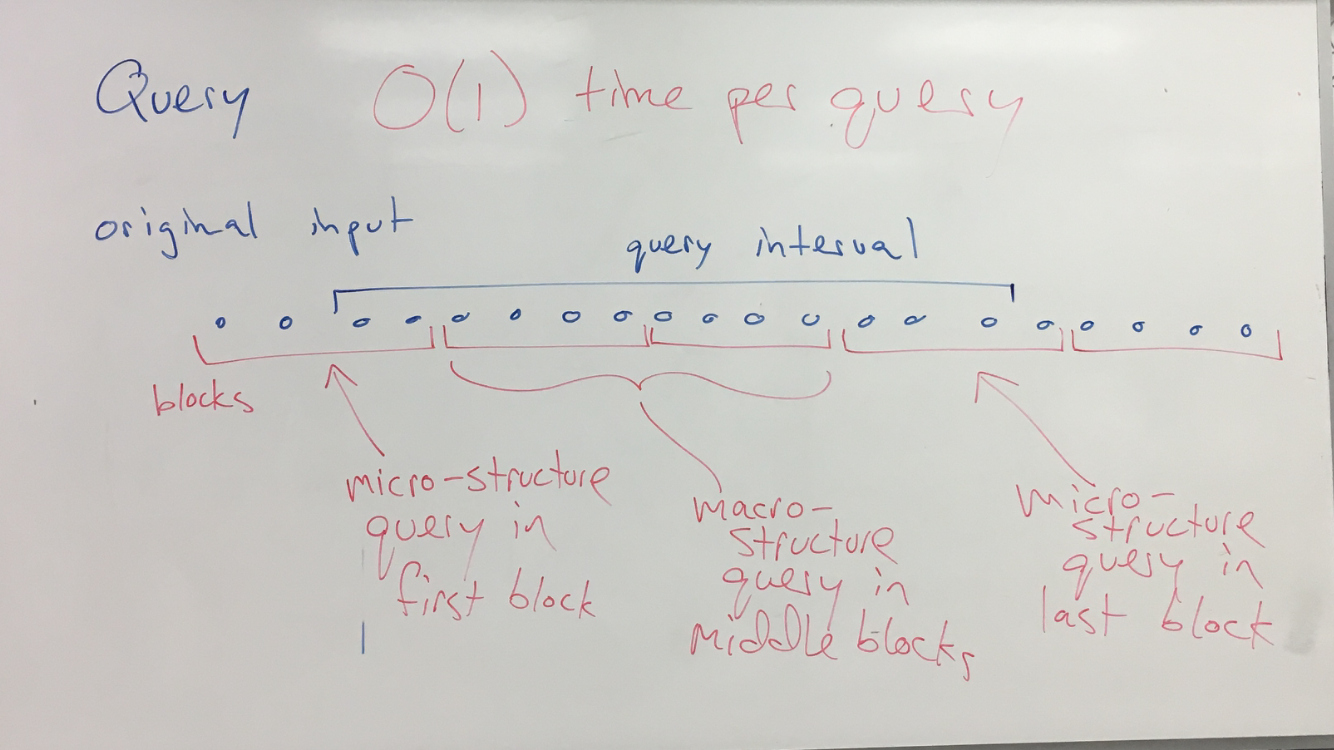 Query O(1) time per query
original input
query interval
blocks
micro-structure
query in
first block
macro-
structure
query in
middle blocks
micro-
structure
query in
last block